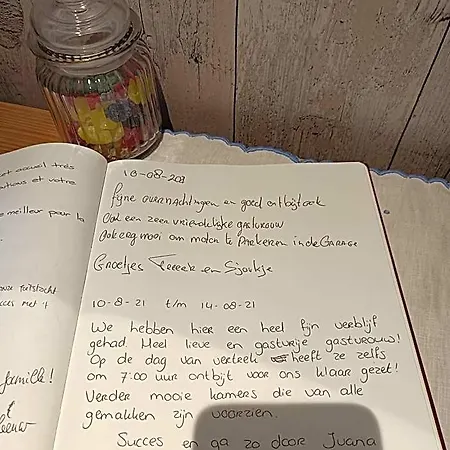 et accueil très
ations et votre
e meilleur pour la
10-08-201
Fijne overnachtingen en goed ontbijt ook
Ook een zeer vriendelijke gastvrouw
Ook erg mooi om motor te parkeren in de Garage
Groetjes en Sjoukje
10-8-21 t/m 14-08-21
We hebben hier een heel fijn verblijf
gehad. Heel lieve en gastvrije gastvrouw!
Op de dag van vertrek heeft ze zelfs
om 7:00 uur ontbijt voor ons klaar gezet!
Verder mooie kamers die van alle
gemakken zijn voorzien.
Succes en ga zo door Juana
familie!